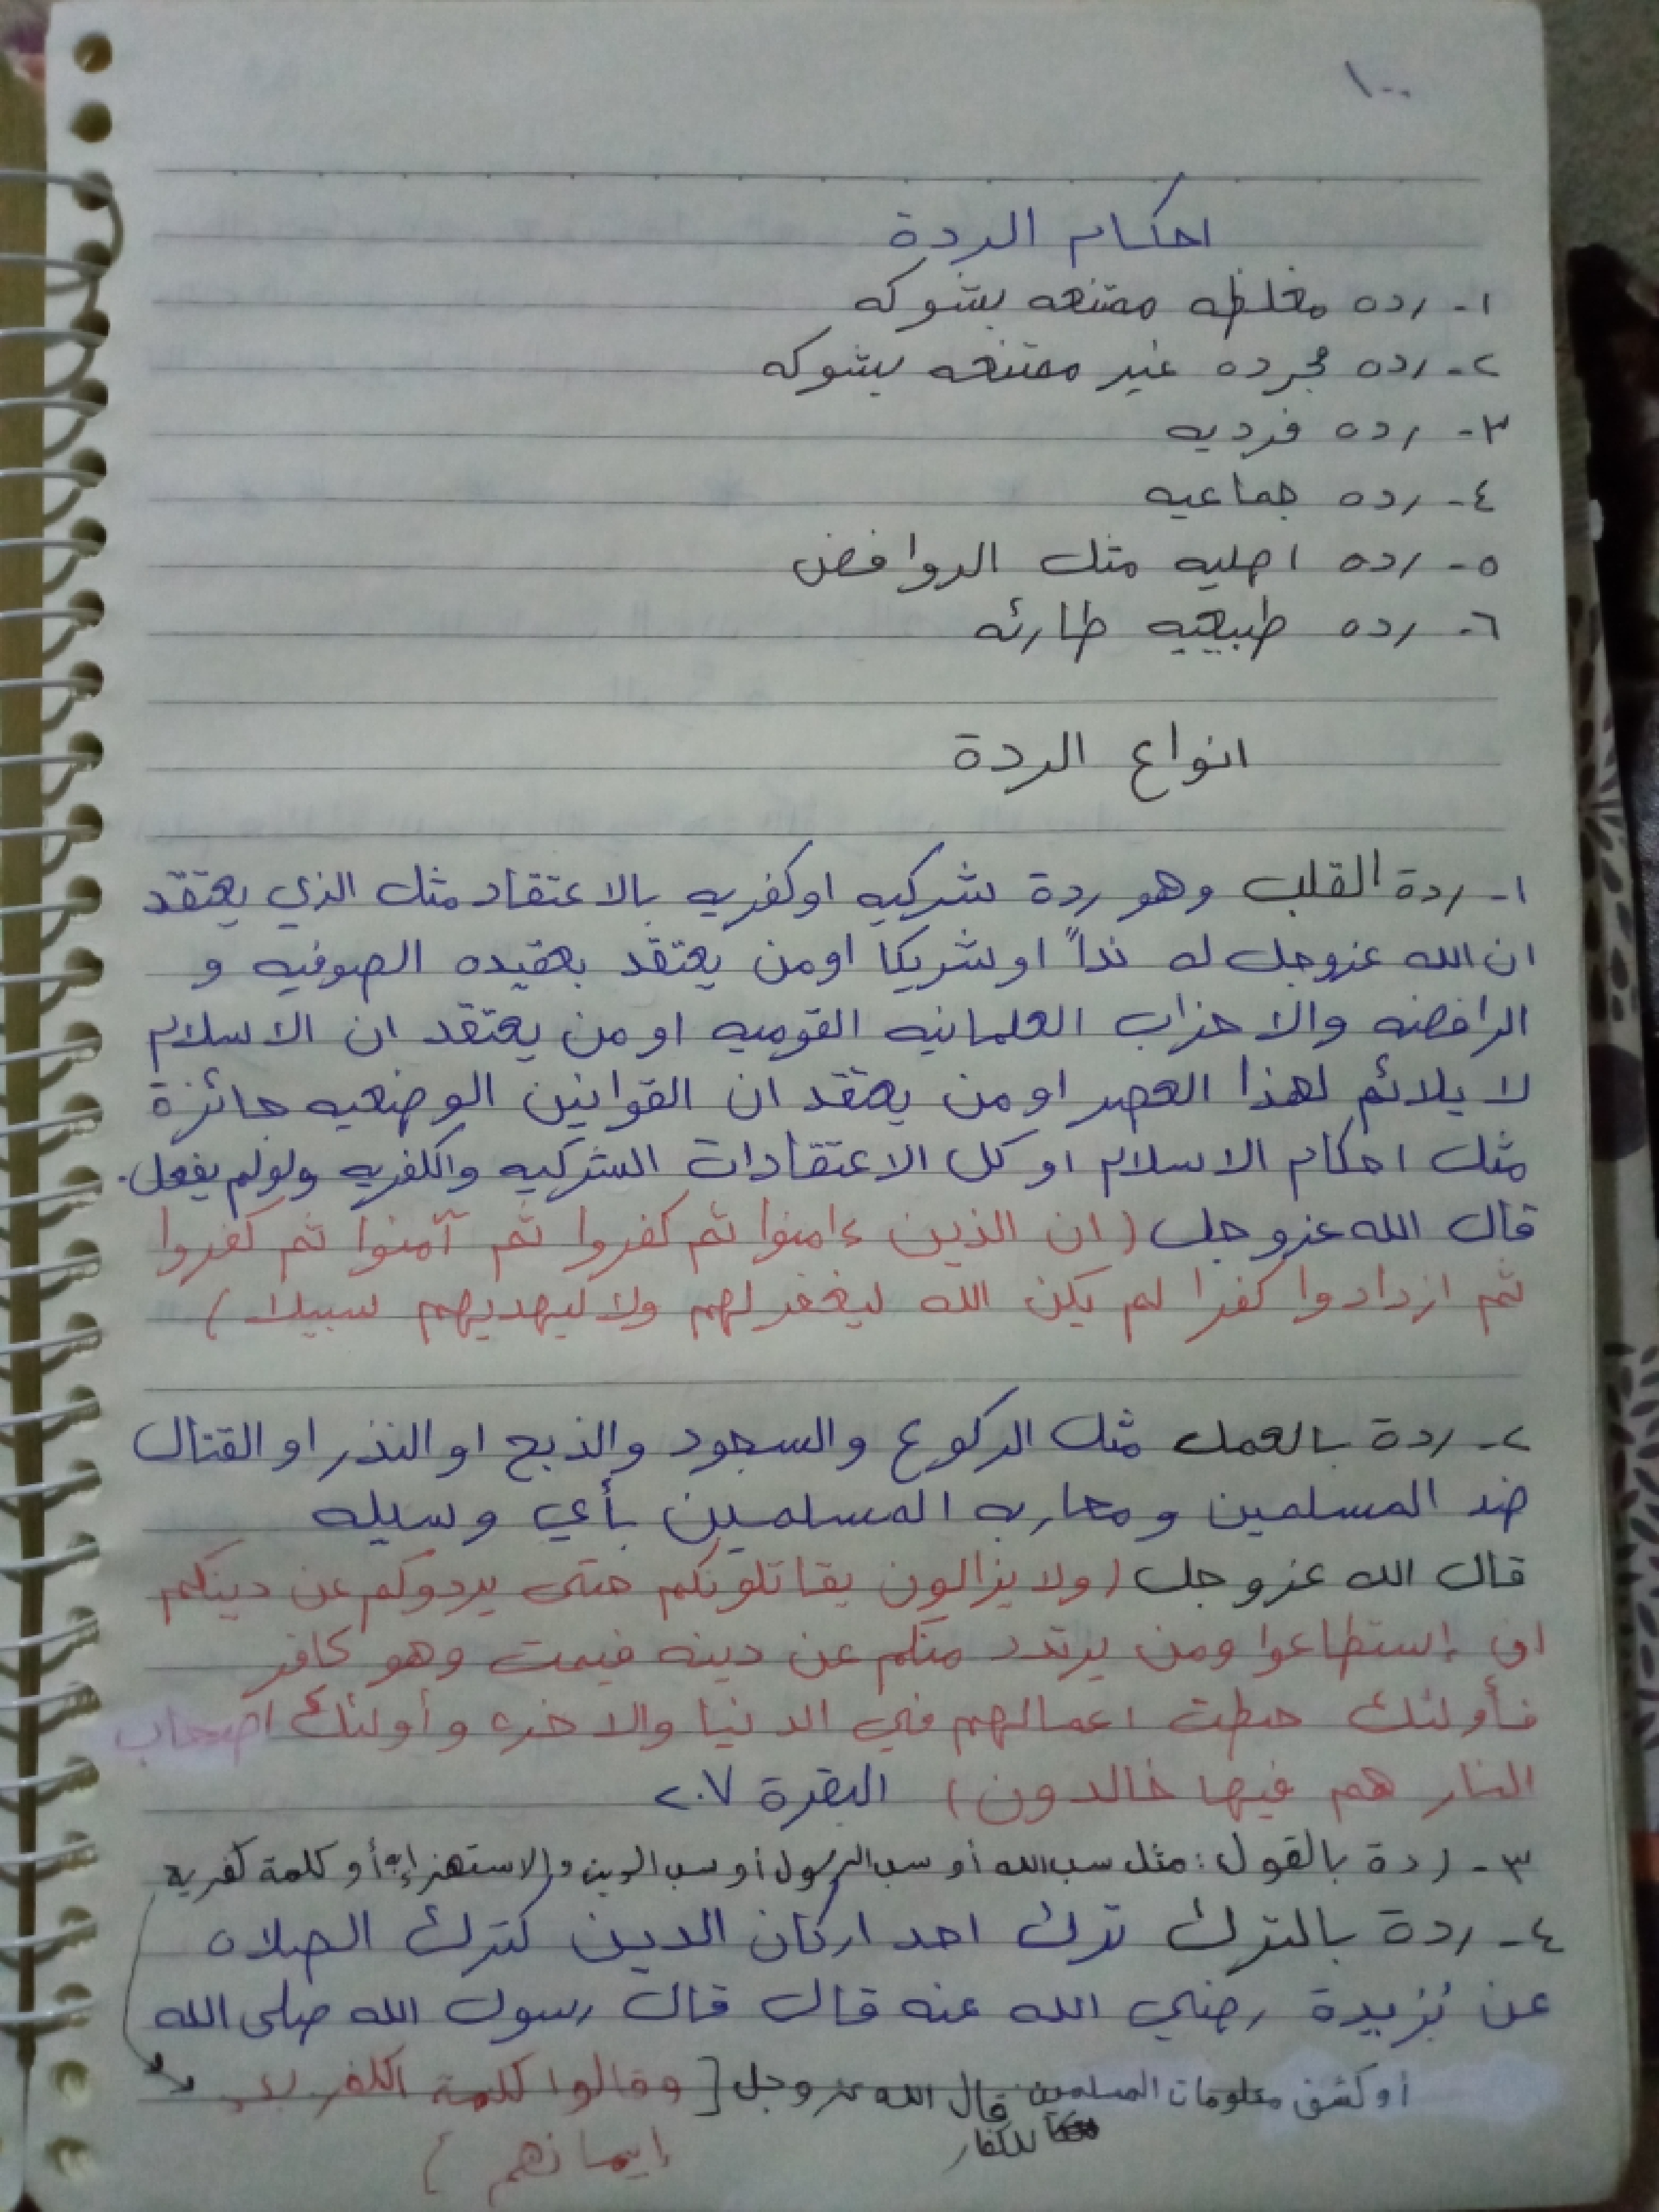 ١٠٠
احكام الردة
١- رده مغلظه ممتنعه بشوكه
٢- رده مجرده غير ممتنعه بشوكه
٣- رده فرديه
٤- رده جماعيه
٥- رده اصليه مثل الروافض
٦- رده طبيعيه طارئه
انواع الردة
١- ردة القلب وهو ردة شركيه او كفريه بالاعتقاد مثل الذي يعتقد
ان الله عزوجل له نداً او شريكا او من يعتقد بعقيده الصوفيه و
الرافضه والاحزاب العلمانيه القوميه او من يعتقد ان الاسلام
لا يلائم لهذا العصر او من يعتقد ان القوانين الوضعيه جائزة
مثل احكام الاسلام او كل الاعتقادات الشركيه والكفريه ولو لم يفعل.
قال الله عزوجل (ان الذين ءامنوا ثم كفروا ثم آمنوا ثم كفروا
ثم ازدادوا كفرا لم يكن الله ليغفر لهم ولا ليهديهم سبيلا)
٢- ردة بالعمل مثل الركوع والسجود والذبح او النذر او القتال
ضد المسلمين ومحاربه المسلمين بأي وسيله
قال الله عزوجل (ولا يزالون يقاتلونكم حتى يردوكم عن دينكم
ان إستطاعوا ومن يرتدد منكم عن دينه فيمت وهو كافر
فأولئك حبطت اعمالهم في الدنيا والاخره وأولئك اصحاب
النار هم فيها خالدون) البقرة ٢٠٧
٣- ردة بالقول: مثل سب الله أو سب الرسول أو سب الدين والاستهزاء به أو كلمة كفريه
٤- ردة بالترك ترك احد اركان الدين كترك الصلاه
عن بُريدة رضي الله عنه قال قال رسول الله صلى الله
أو كشف معلومات المسلمين للكفار قال الله عزوجل [وقالوا كلمة الكفر بعد
إيمانهم)